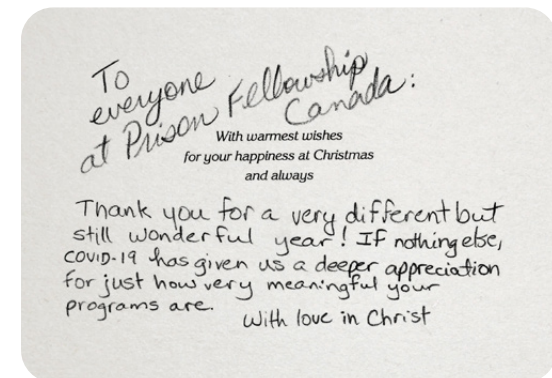 To
everyone
at Prison Fellowship
Canada:
With warmest wishes
for your happiness at Christmas
and always
Thank you for a very different but
still wonderful year! If nothing else,
COVID-19 has given us a deeper appreciation
for just how very meaningful your
programs are.
With love in Christ